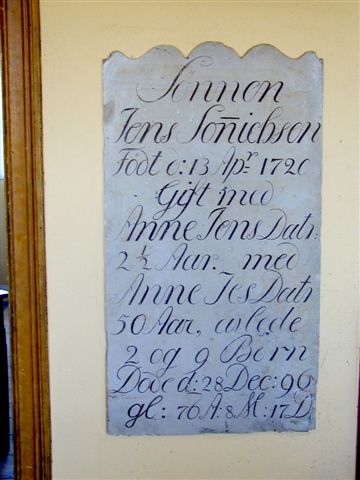 Sønnen
Jens Son̄ichsen
Født d: 13 Apr: 1720
Gift med
Anne Jens Datr:
2 ½ Aar. med
Anne Jes Datr
50 Aar, avlede
2 og 9 Børn
Døde d: 28 Dec: 96
gl: 76 A: 8 M: 17 D